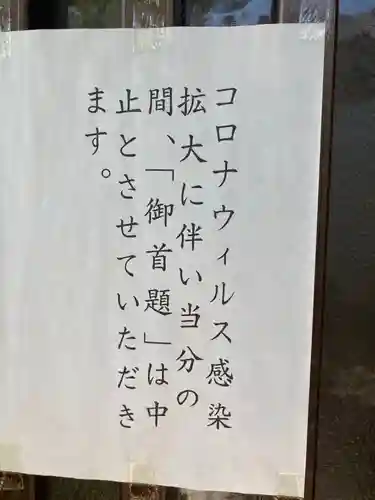 コロナウィルス感染
拡大に伴い当分の
間、「御首題」は中
止とさせていただき
ます。